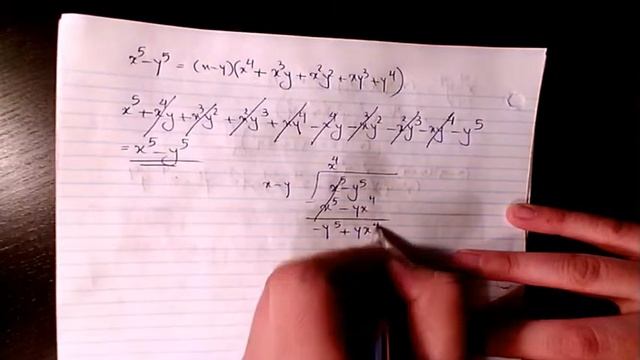 x⁵-y⁵ = (x-y)(x⁴+x³y+x²y²+xy³+y⁴)
x⁵+x⁴y+x³y²+x²y³+xy⁴-x⁴y-x³y²-x²y³-xy⁴-y⁵
= x⁵-y⁵
x⁴
x-y
x⁵-y⁵
x⁵-yx⁴
-y⁵+yx⁴